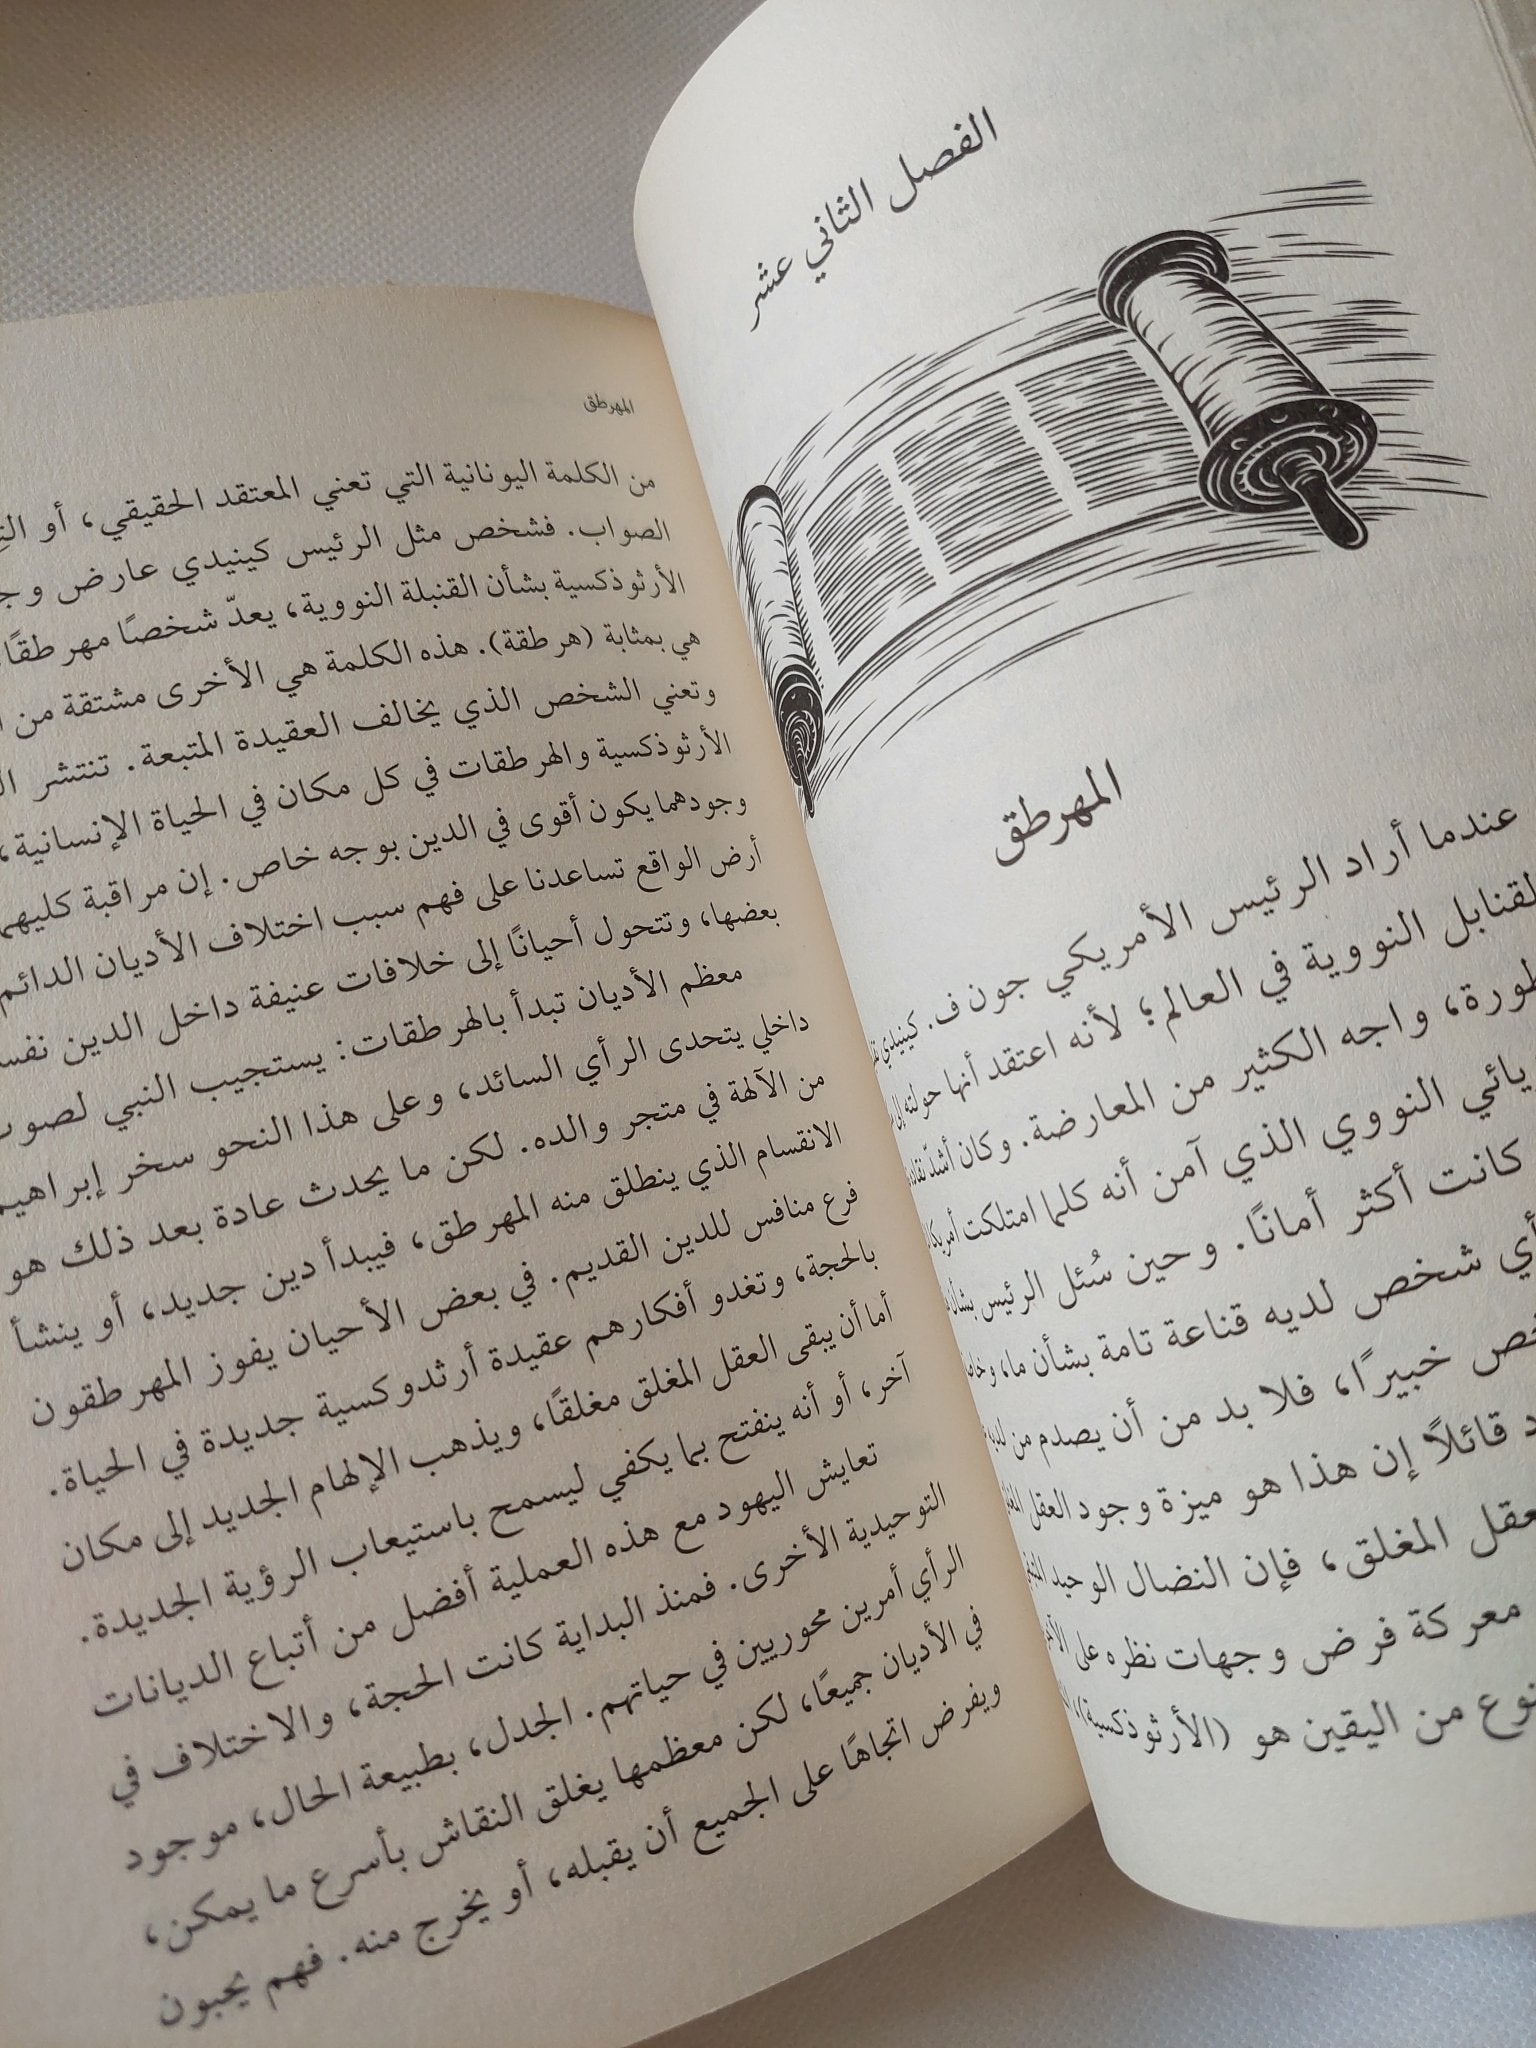 الفصل الثاني عشر
المهرطق
عندما أراد الرئيس الأمريكي جون ف. كينيدي
لقنابل النووية في العالم؛ لأنه اعتقد أنها حولته إلى
واجه الكثير من المعارضة. وكان أشدّ
النووي الذي آمن أنه كلما امتلكت أمريكا
كانت أكثر أمانًا. وحين سُئل الرئيس بشأن
أي شخص لديه قناعة تامة بشأن ما،
خبيرًا، فلا بد من أن يصدم من لديه
قائلاً إن هذا هو ميزة وجود العقل
المغلق، فإن النضال الوحيد
معركة فرض وجهات نظره على
نوع من اليقين هو (الأرثوذكسية)،
المهرطق
من الكلمة اليونانية التي تعني المعتقد الحقيقي، أو
الصواب. فشخص مثل الرئيس كينيدي عارض
الأرثوذكسية بشأن القنبلة النووية، يعدّ شخصًا مهرطقًا
هي بمثابة (هرطقة). هذه الكلمة هي الأخرى مشتقة من
وتعني الشخص الذي يخالف العقيدة المتبعة. تنتشر
الأرثوذكسية والهرطقات في كل مكان في الحياة الإنسانية،
وجودهما يكون أقوى في الدين بوجه خاص. إن مراقبة كليهما
أرض الواقع تساعدنا على فهم سبب اختلاف الأديان الدائم
بعضها، وتتحول أحيانًا إلى خلافات عنيفة داخل الدين
معظم الأديان تبدأ بالهرطقات: يستجيب النبي لصوت
داخلي يتحدى الرأي السائد، وعلى هذا النحو سخر إبراهيم
من الآلهة في متجر والده. لكن ما يحدث عادة بعد ذلك هو
الانقسام الذي ينطلق منه المهرطق، فيبدأ دين جديد، أو ينشأ
فرع منافس للدين القديم. في بعض الأحيان يفوز المهرطقون
بالحجة، وتغدو أفكارهم عقيدة أرثدوكسية جديدة في الحياة.
أما أن يبقى العقل المغلق مغلقًا، ويذهب الإلهام الجديد إلى مكان
آخر، أو أنه ينفتح بما يكفي ليسمح باستيعاب الرؤية الجديدة.
تعايش اليهود مع هذه العملية أفضل من أتباع الديانات
التوحيدية الأخرى. فمنذ البداية كانت الحجة، والاختلاف في
الرأي أمرين محوريين في حياتهم. الجدل، بطبيعة الحال، موجود
في الأديان جميعًا، لكن معظمها يغلق النقاش بأسرع ما يمكن،
ويفرض اتجاهًا على الجميع أن يقبله، أو يخرج منه. فهم يحبون